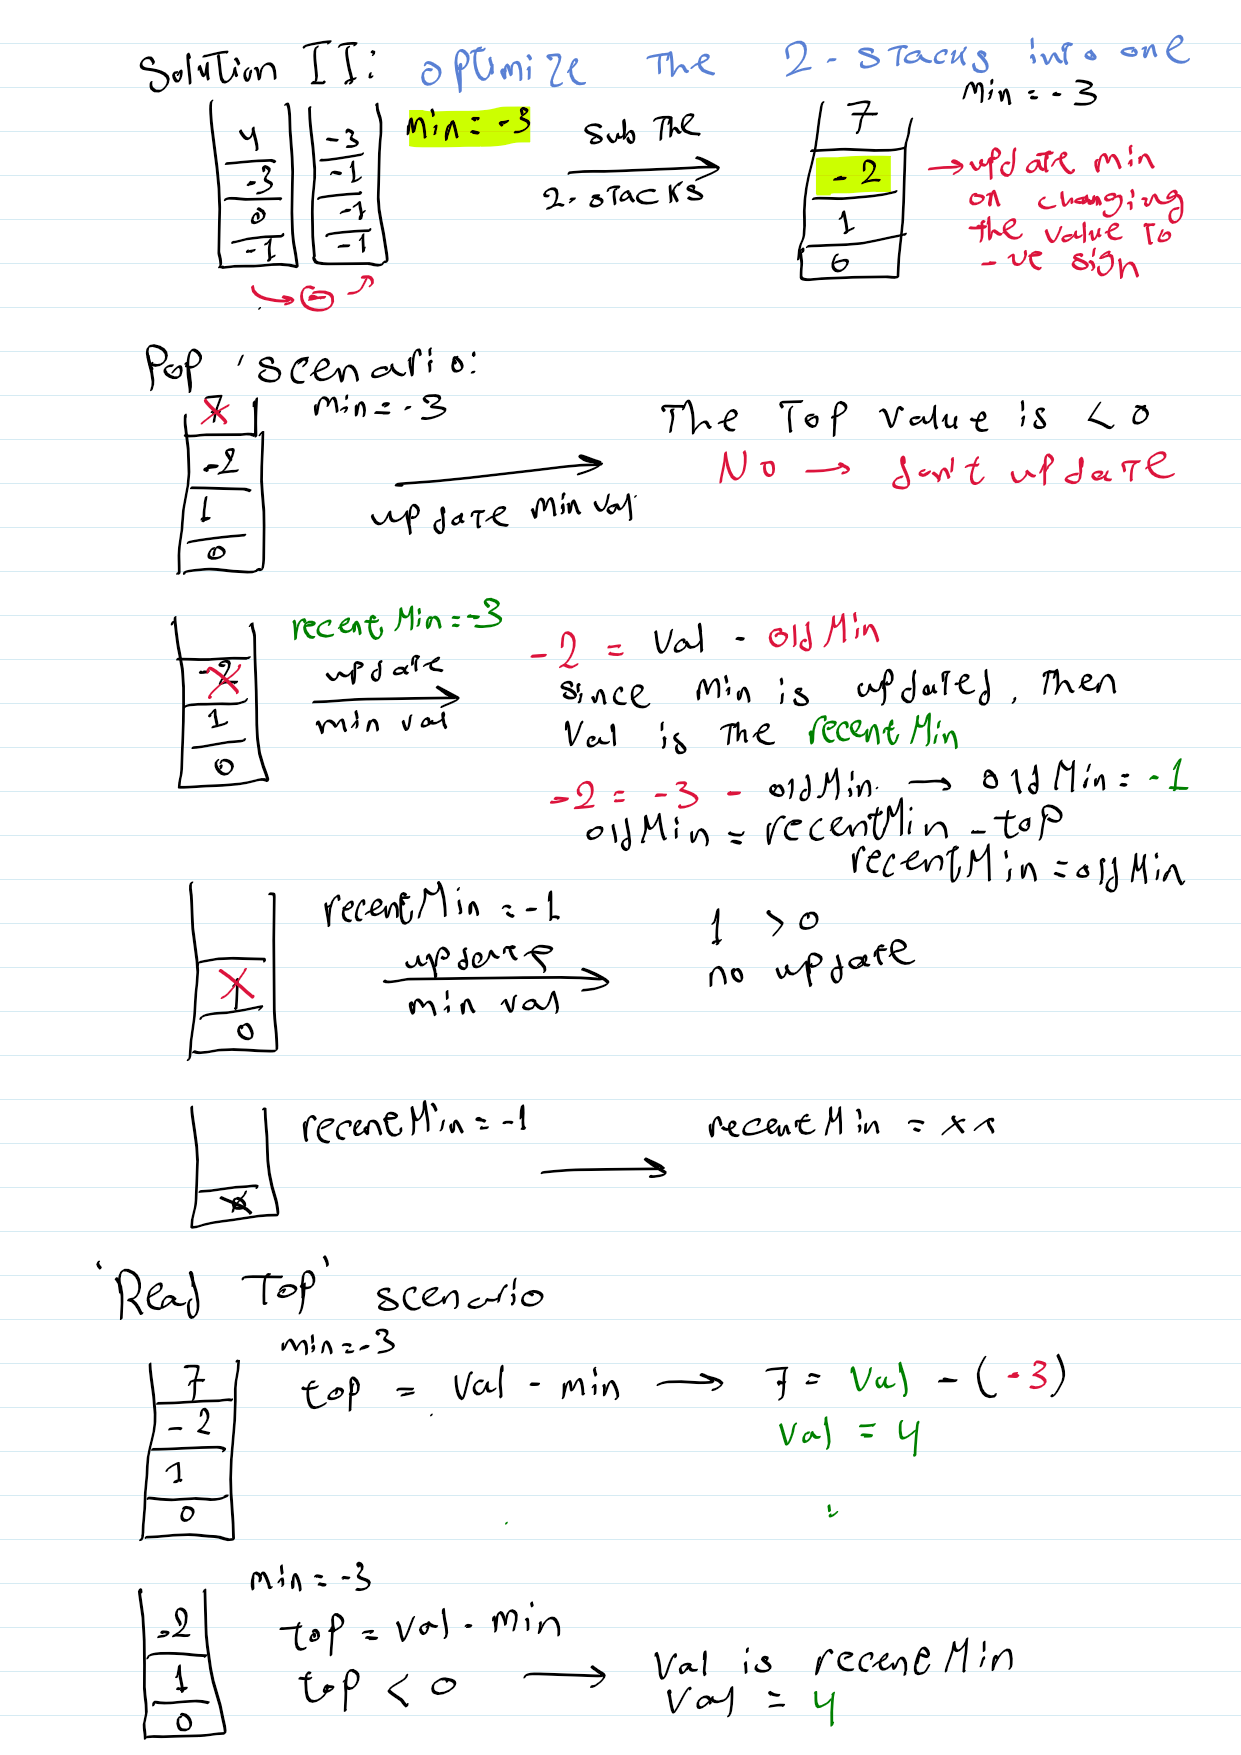 Solution II: optimize the 2-stacks into one
4
-3
0
-1
-3
-1
-1
-1
min = -3
sub the
2-stacks
min = -3
7
-2
1
0
→ update min
on changing
the value to
-ve sign
Pop 'scenario:
7
-2
1
0
min = -3
update min val
The Top value is < 0
No → don't update
-2
1
0
recent Min = -3
update
min val
-2 = val - old Min
since min is updated, then
val is the recent Min
-2 = -3 - old Min. → old Min = -1
old Min = recent Min - top
recent Min = old Min
1
0
recent Min = -1
update
min val
1 > 0
no update
0
recent Min = -1
→
recent Min = xx
'Read Top' scenario
7
-2
1
0
min = -3
top = val - min → 7 = val - (-3)
val = 4
-2
1
0
min = -3
top = val - min
top < 0 → val is recent Min
val = 4